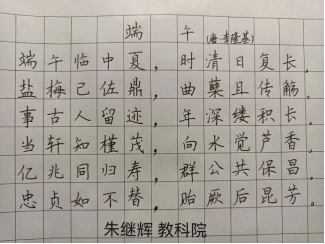 端 午 (唐·李隆基)
端午临中夏，时清日复长。
盐梅已佐鼎，曲蘖且传觞。
事古人留迹，年深缕积长。
当轩知槿茂，向水觉芦香。
亿兆同归寿，群公共保昌。
忠贞如不替，贻厥后昆芳。
朱继辉 教科院